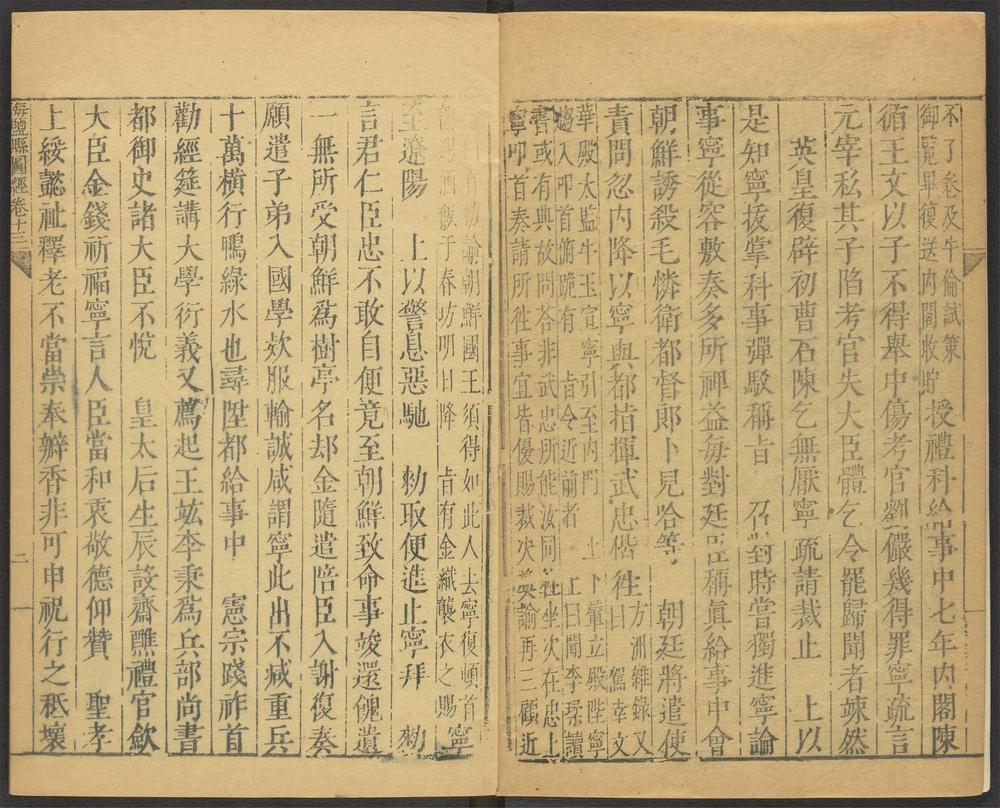 不了卷及牛倫試策
御覽畢復送內閣收貯
授禮科給事中七年內閣陳
循王文以子不得舉中傷考官劉儼幾得罪寧疏言
元宰私其子陷考官失大臣體乞令罷歸聞者竦然
英皇復辟初曹石陳乞無厭寧疏請裁止 上以
是知寧拔掌科事彈駁稱旨 召對時嘗獨進寧論
事寧從容敷奏多所裨益每對廷臣稱眞給事中會
朝鮮誘殺毛憐衛都督郎卜見哈等 朝廷將遣使
責問忽內降以寧與都指揮武忠偕徃
方洲雜錄又
曰 駕幸文
華殿太監牛玉宣寧引至內門 上御輦立殿陛寧
趨入叩首俯跪有 旨令近前者 上曰聞李瑈讀
書或有典故問答非武忠所能汝同徃坐次在忠上
寧叩首奏請所徃事宜皆優賜裁决奬諭再三顧近
勑諭朝鮮國王須得如此人去寧復頓首
飯于春坊明日降 旨有金織襲衣之賜
寧
至遼陽 上以警息惡馳 勑取便進止寧拜 勑
言君仁臣忠不敢自便竟至朝鮮致命事竣還餽遺
一無所受朝鮮爲樹亭名却金隨遣陪臣入謝復奏
願遣子弟入國學欵服輸誠咸謂寧此出不減重兵
十萬橫行鴨綠水也尋陞都給事中 憲宗踐祚首
勸經筵講大學衍義又薦起王竑李秉爲兵部尚書
都御史諸大臣不悅 皇太后生辰設齋醮禮官歛
大臣金錢祈福寧言人臣當和衷敬德仰贊 聖孝
上綏懿祉釋老不當崇奉瓣香非可申祝行之秪壞
海鹽縣圖經卷十三
二